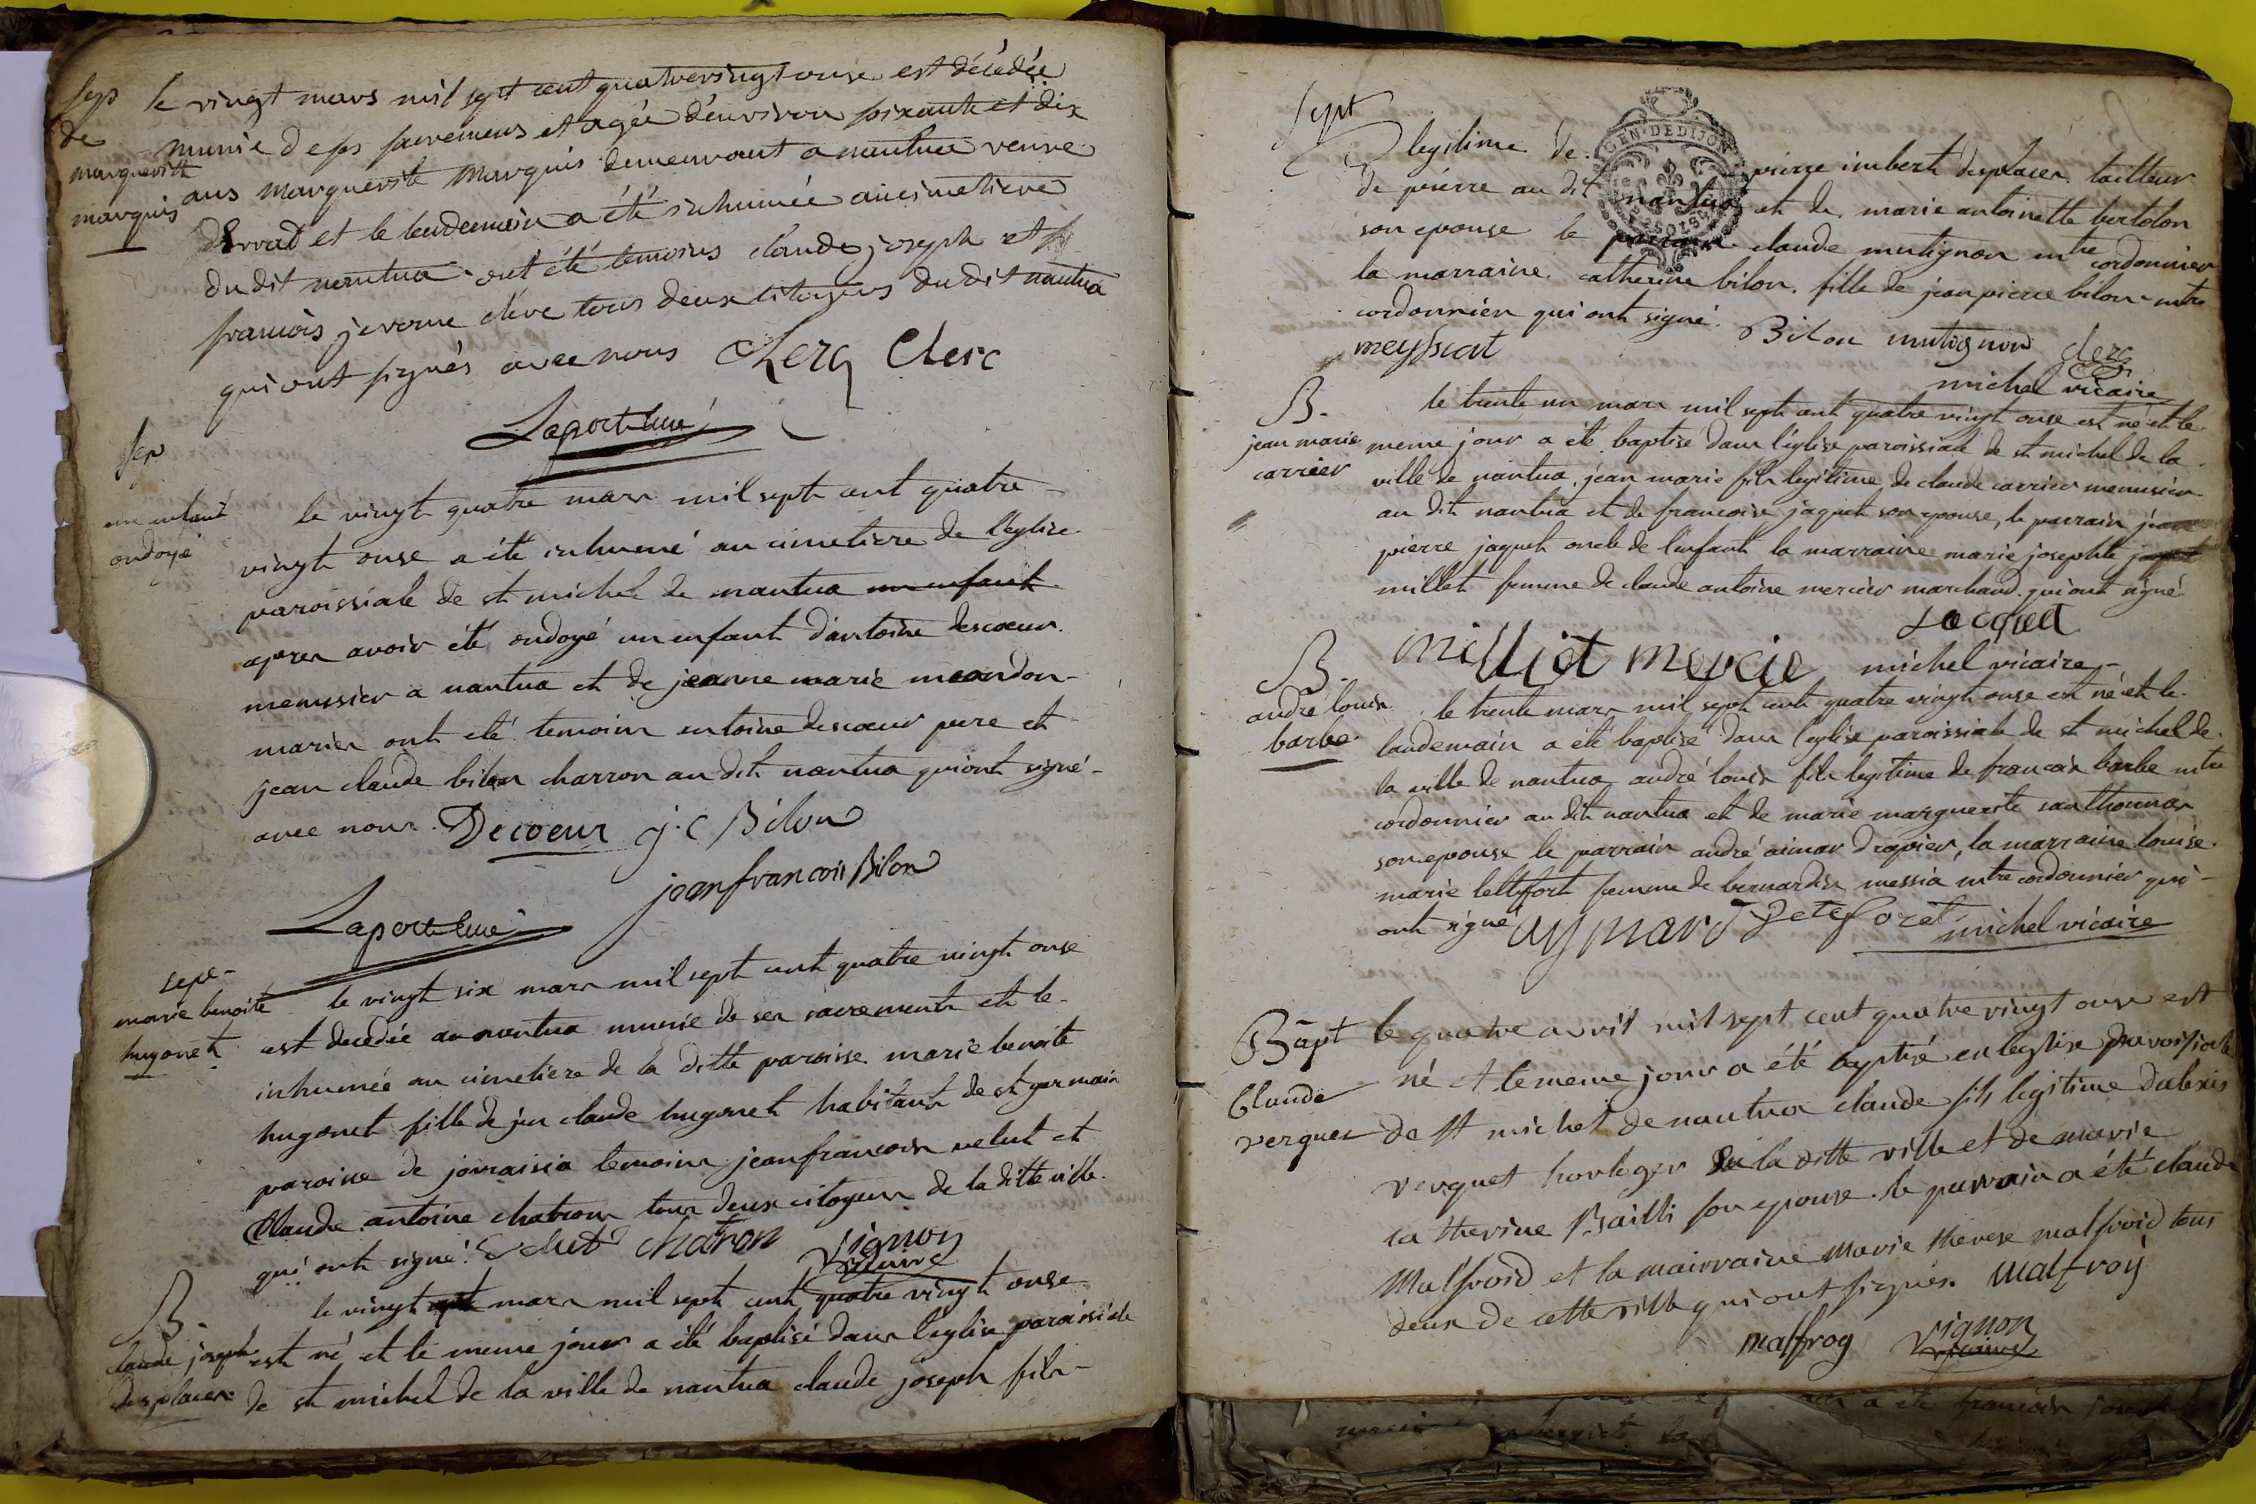 Sep
de
margueritte
marquis
le vingt mars mil sept cent quatrevingt onse est décédée
munie de ses sacremens et agée d'environ soixante et dix
ans marguerite marquis demeurant a nantua veuve
et le lendemain a été inhumée au cimetiere
du dit nantua ont été temoins claude joseph et
francois jerome clerc tous deux citoyens du dit nantua
qui ont signés avec nous Clerc Clerc
Laporte curé
Sep
un enfant
ondoyé
le vingt quatre mars mil sept cent quatre
vingt onse a été inhumé au cimetiere de l'eglise
paroissiale de st michel de nantua un enfant
apres avoir été ondoyé un enfant d'antoine descoeur
menusier a nantua et de jeanne marie mandon
mariés ont été temoins antoine descoeur pere et
jean claude bilon charron au dit nantua qui ont signé
avec nous. Decoeur j. c Bilon
jean francois Bilon
Laporte curé
sepe
marie benoite
hugonet
le vingt six mars mil sept cent quatre vingt onse
est decedée a nantua munie de ses sacrements et le
inhumée au cimetiere de la ditte paroisse marie benoite
hugonet fille de feu claude hugonet habitant de st germain
paroisse de temoins jean francois velut et
Claude antoine chatron tous deux citoyens de la ditte ville
qui ont signé. velut chatron Vignon
Vicaire
B.
claude joseph
desplaces
le vingt sept mars mil sept cent quatre vingt onse
est né et le meme jour a été baptisé dans l'eglise paroissiale
de st michel de la ville de nantua claude joseph fils
Sept
GEN. DE DIJON
legitime de pierre imbert desplaces tailleur
de pierre au dit nantua et de marie antoinette bertolon
son epouse le parrain claude mutignon mtre cordonnier
la marraine catherine bilon fille de jean pierre bilon mtre
cordonnier qui ont signé. Bilon mutignon clerc
meyssiat
michel vicaire
B.
jean marie
carrier
le trente un mars mil sept cent quatre vingt onse est né et le
meme jour a été baptisé dans l'eglise paroissiale de st michel de la
ville de nantua jean marie fils legitime de claude carrier menusier
au dit nantua et de francoise jaquet son epouse, le parrain jean
pierre jaquet oncle de l'enfant la marraine marie josephte
millet femme de claude antoine mercier marchand qui ont signé
Jacquet
milliet mercie michel vicaire
B.
andré louis
barbe
le trente mars mil sept cent quatre vingt onse est né et le
landemain a été baptisé dans l'eglise paroissiale de st michel de
la ville de nantua andré louis fils legitime de francois barbe mtre
cordonnier au dit nantua et de marie marguerite santhonnax
son epouse le parrain andré aimar drapier, la marraine louise
marie femme de bernardin messia mtre cordonnier qui
ont signé aymard michel vicaire
Bapt
Claude
verguet
le quatre avril mil sept cent quatre vingt onse est
né et le meme jour a été baptisé en l'eglise paroissiale
de st michel de nantua claude fils legitime d'alexis
verguet horloger de la ditte ville et de marie
catherine Bailli son epouse. le parrain a été claude
Malfroid et la mairraine marie therese malfroid tous
deux de cette ville qui ont signés. Malfroy
malfroy Vignon
Vicaire